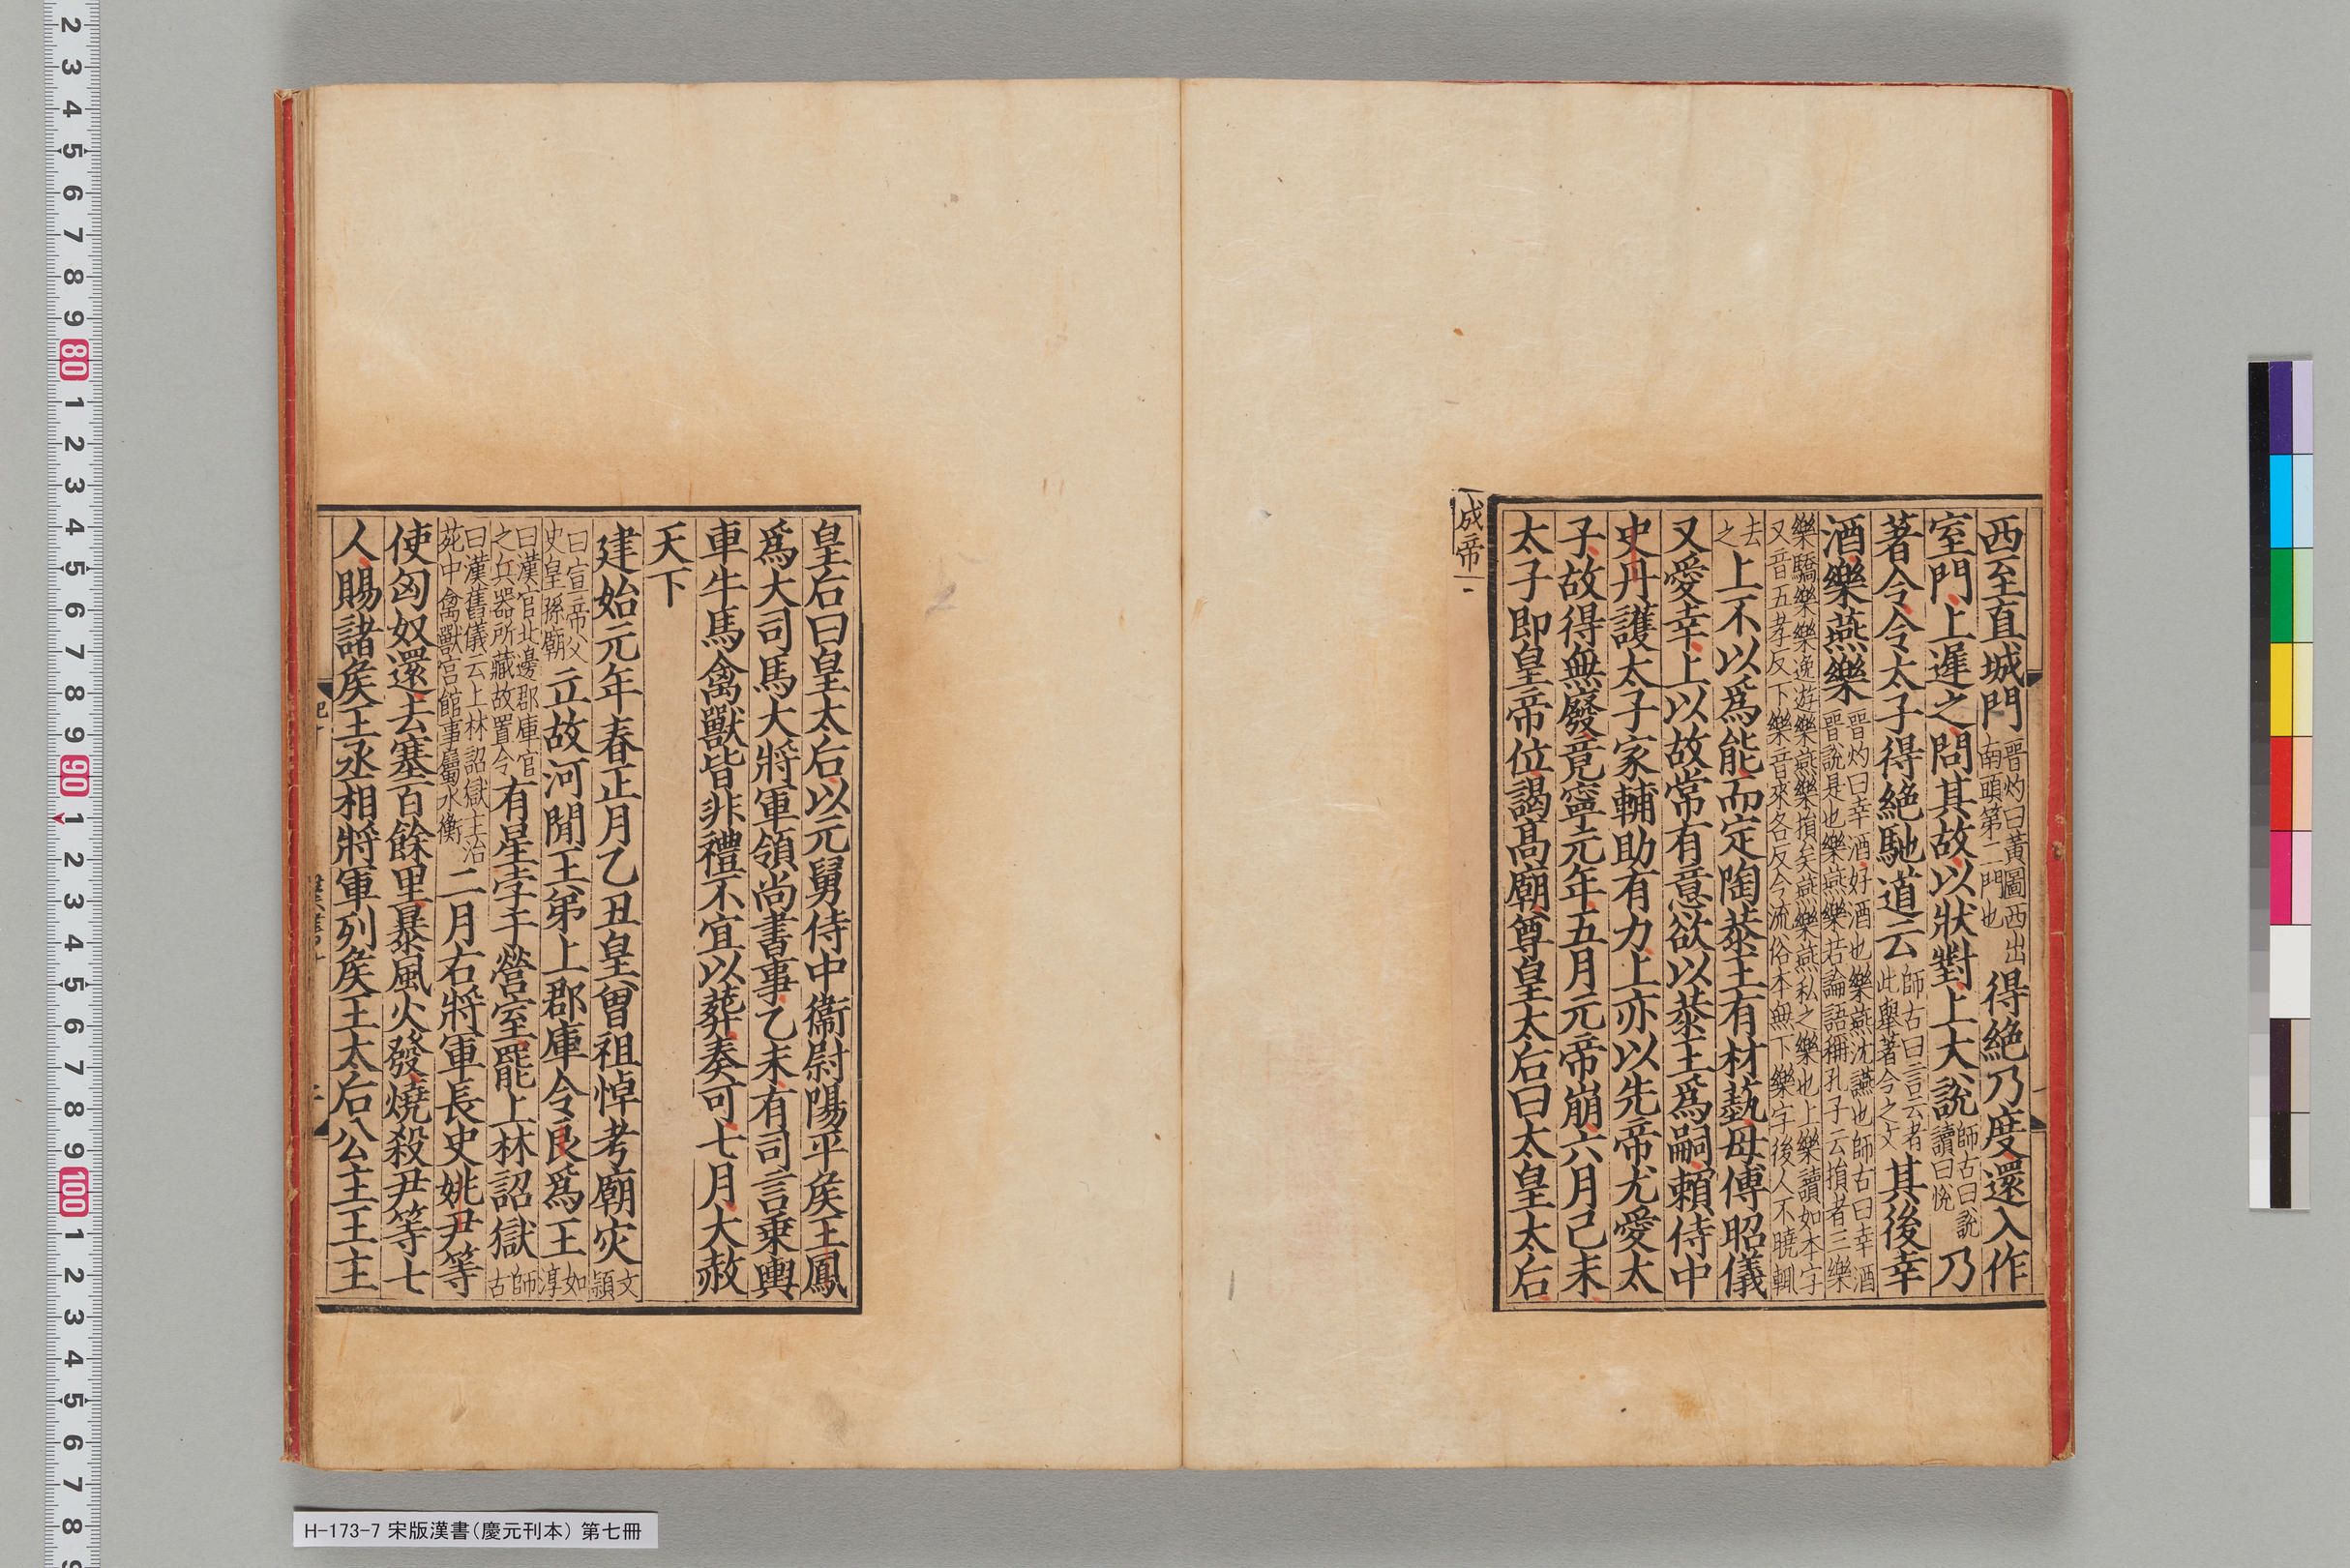 成帝
西至直城門晉灼曰黃圖西出南頭第二門也得絶乃度還入作
室門上遲之問其故以狀對上大說師古曰說讀曰悅乃
著令令太子得絶馳道云師古曰言云者此舉著令之文其後幸
酒樂燕樂晉灼曰幸酒好酒也樂燕沈讌也師古曰幸酒晉說是也樂燕樂若論語稱孔子云損者三樂
樂驕樂樂逸遊樂燕樂損矣燕樂燕私之樂也上樂讀如本字又音五孝反下樂音來各反今流俗本無下樂字後人不曉輒
去之上不以爲能而定陶恭王有材藝母傅昭儀
又愛幸上以故常有意欲以恭王爲嗣頼侍中
史丹護太子家輔助有力上亦以先帝尤愛太
子故得無廢竟寧元年五月元帝崩六月己未
太子即皇帝位謁髙廟尊皇太后曰太皇太后
皇后曰皇太后以元舅侍中衞尉陽平矦王鳳
爲大司馬大將軍領尚書事乙未有司言乗輿
車牛馬禽獸皆非禮不宜以葬奏可七月大赦
天下
建始元年春正月乙丑皇曾祖悼考廟災文穎
曰宣帝父史皇孫廟立故河閒王弟上郡庫令良爲王如淳
曰漢官北邊郡庫官之兵器所藏故置令有星孛于營室罷上林詔獄師古
曰漢舊儀云上林詔獄主治苑中禽獸宮館事屬水衡二月右將軍長史姚尹等
使匈奴還去塞百餘里暴風火發燒殺尹等七
人賜諸矦王丞相將軍列矦王太后公主王主
H-173-7 宋版漢書(慶元刊本) 第七冊